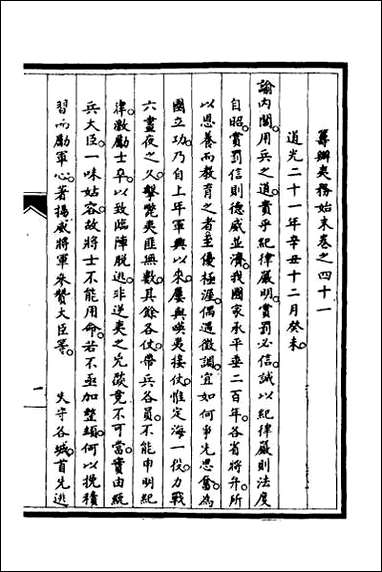 籌辦夷務始末卷之四十一
道光二十一年辛丑十二月癸未
諭內閣。用兵之道。貴乎紀律嚴明。賞罰必信。誠以紀律嚴則法度
自昭。賞罰信則德威並濟。我國家承平垂二百年。各省將弁。所
以恩養而教育之者。至優極渥。偶遇徵調。宜如何爭先思奮。為
國立功。乃自上年軍興以來。屢與嘆夷接仗。惟定海一役。力戰
六晝夜之久。擊斃夷匪無數。其餘各仗。帶兵各員。不能申明紀
律。激勵士卒。以致臨陣脫逃。非逆夷之兇燄竟不可當。實由統
兵大臣。一味姑容。故將士不能用命。若不亟加整頓。何以挽積
習而勵軍心。著揚威將軍參贊大臣等。 失守各城。首先逃
一